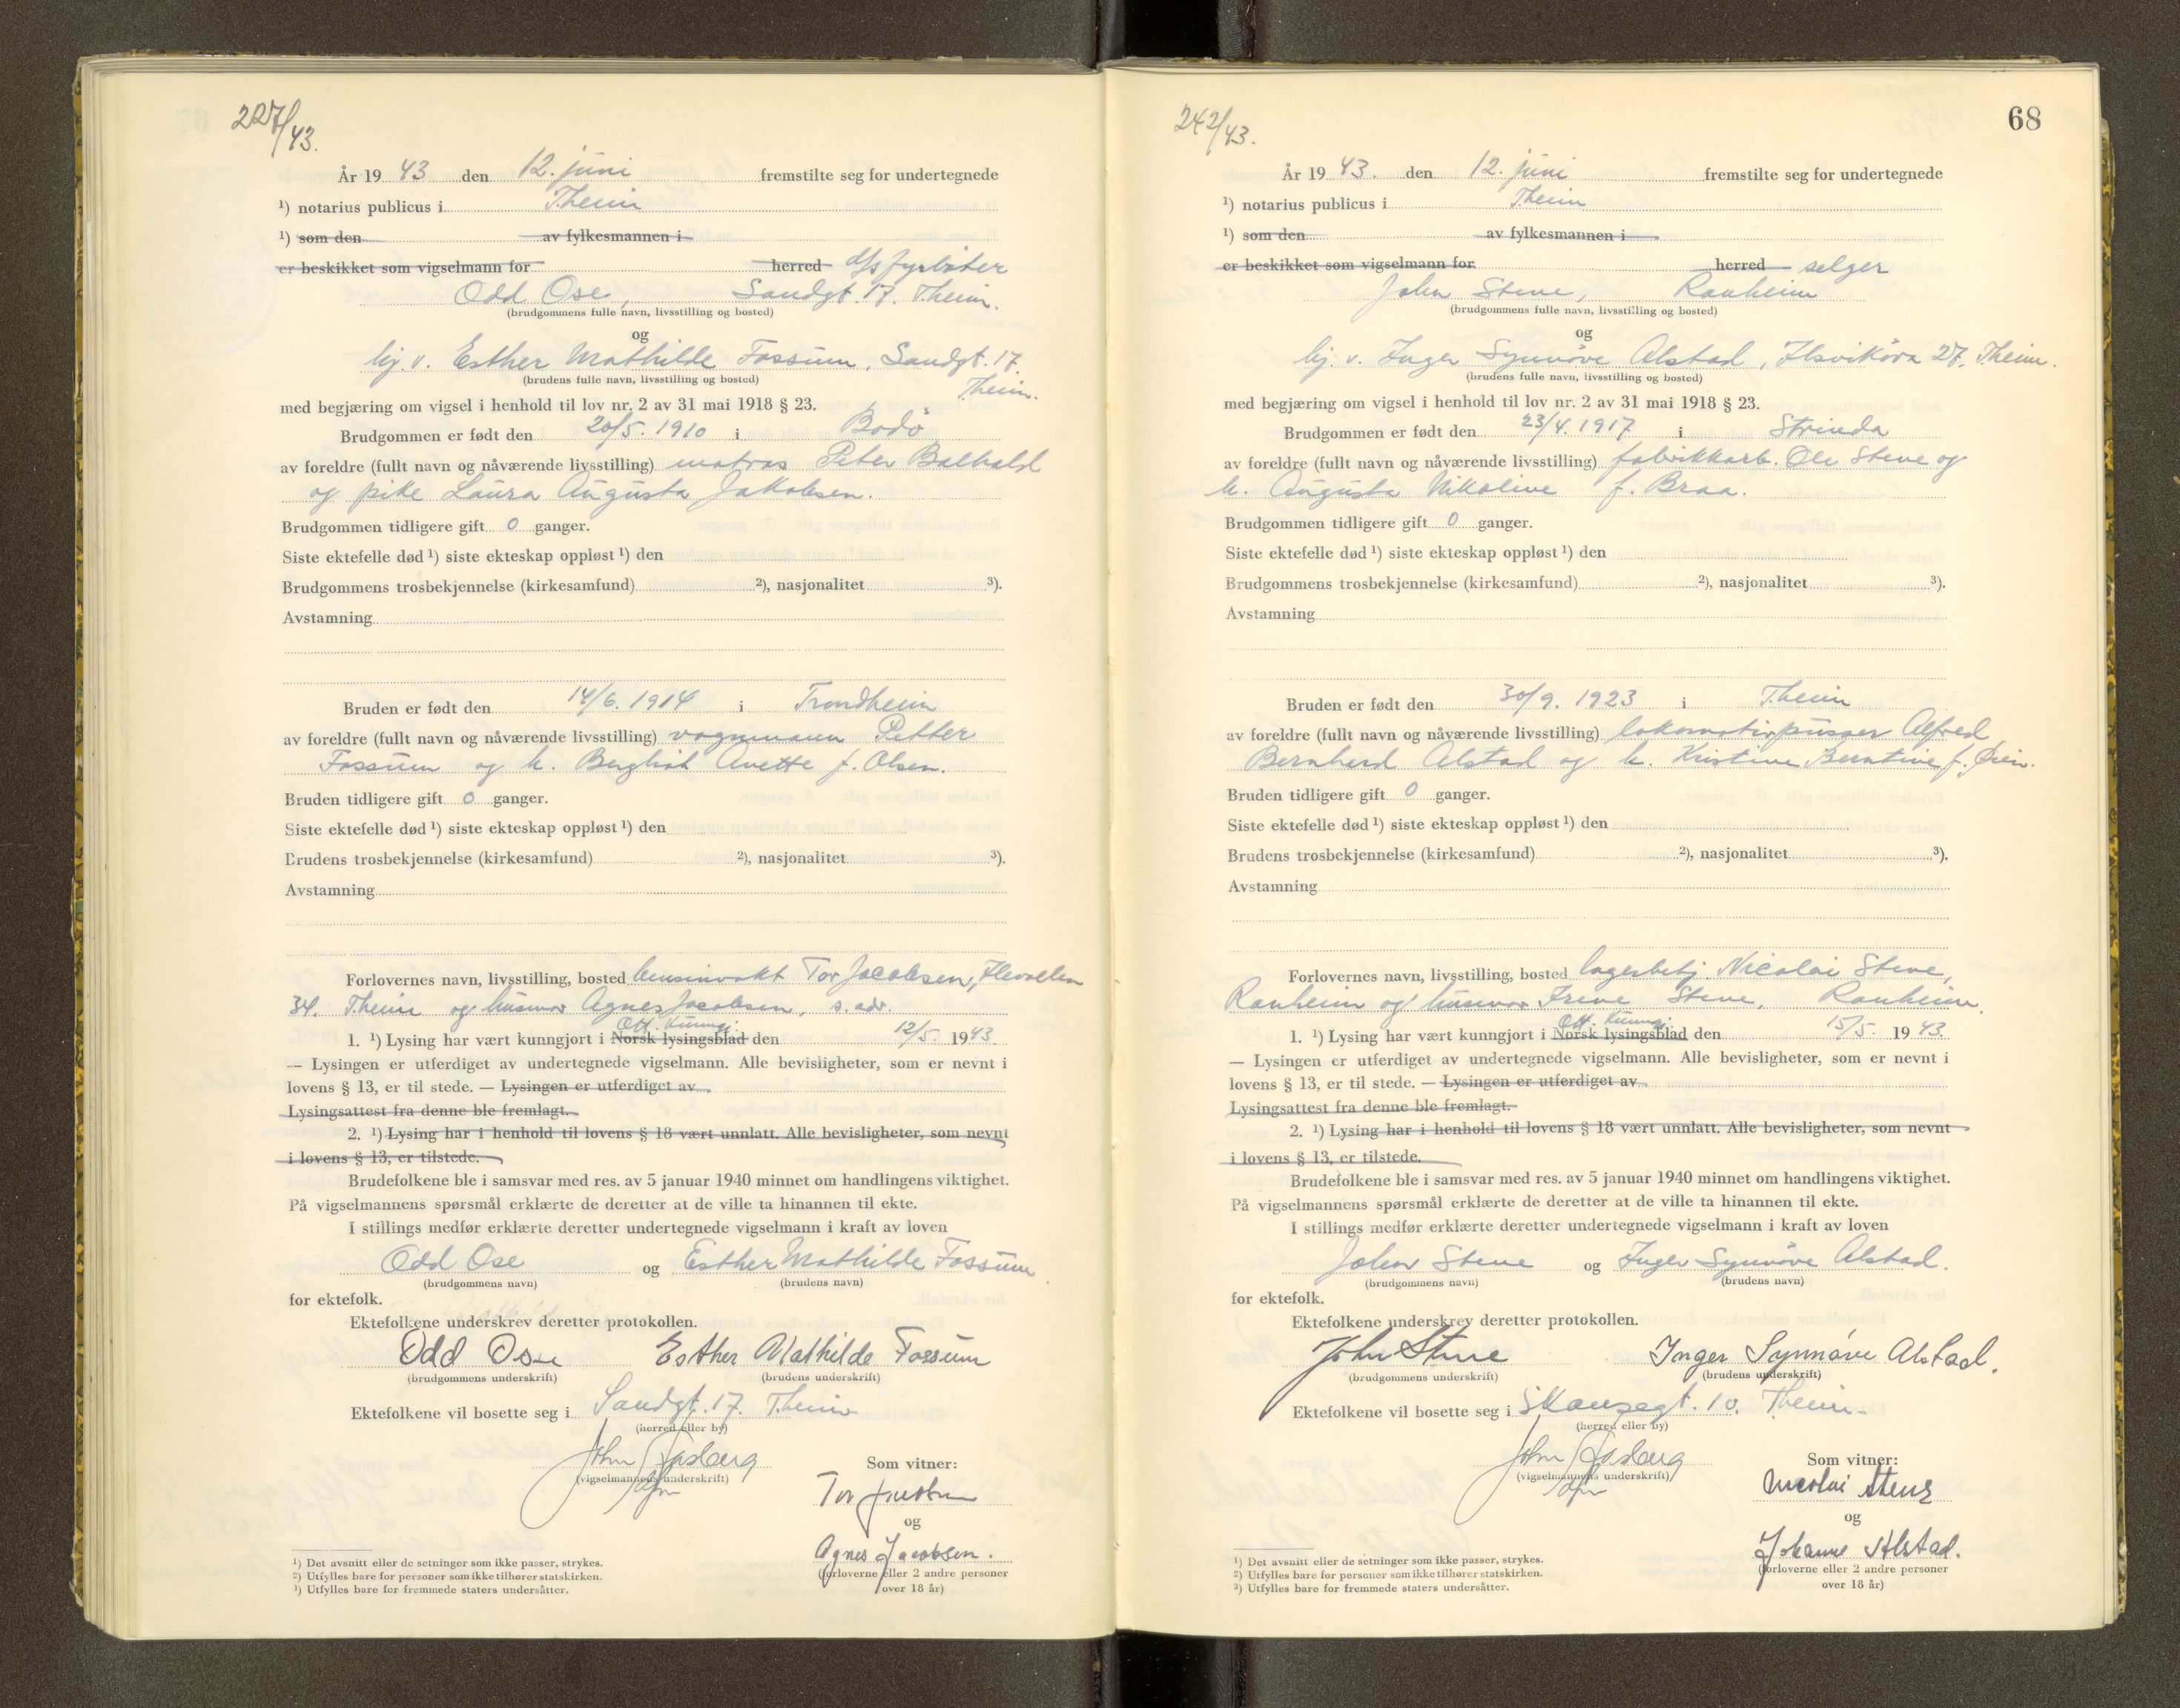 227/43.
År 19 43 den 12. juni fremstilte seg for undertegnede
¹) notarius publicus i Theim
¹) som den av fylkesmannen i
er beskikket som vigselmann for herred d/s fyrbøter
Odd Ose, Sandgt. 17. Theim.
(brudgommens fulle navn, livsstilling og bosted)
og
hj. v. Esther Mathilde Fossum, Sandgt. 17.
(brudens fulle navn, livsstilling og bosted)
Theim.
med begjæring om vigsel i henhold til lov nr. 2 av 31 mai 1918 § 23.
Brudgommen er født den 20/5. 1910 i Bodö
av foreldre (fullt navn og nåværende livsstilling) matros Peter
og pike Laura Augusta Jakobsen.
Brudgommen tidligere gift 0 ganger.
Siste ektefelle død ¹) siste ekteskap oppløst ¹) den
Brudgommens trosbekjennelse (kirkesamfund) ²), nasjonalitet ³).
Avstamning
Bruden er født den 14/6. 1914 i Trondheim
av foreldre (fullt navn og nåværende livsstilling) vognmann Petter
Fossum og h. Bergliot Anette f. Olsen.
Bruden tidligere gift 0 ganger.
Siste ektefelle død ¹) siste ekteskap oppløst ¹) den
Brudens trosbekjennelse (kirkesamfund) ²), nasjonalitet ³).
Avstamning
Forlovernes navn, livsstilling, bosted bensinvakt Tor Jacobsen, Ilevollen
34. Theim og husmor Agnes Jacobsen, s. adr.
Off. kunngj.
1. ¹) Lysing har vært kunngjort i Norsk lysingsblad den 12/5. 19 43.
— Lysingen er utferdiget av undertegnede vigselmann. Alle bevisligheter, som er nevnt i
lovens § 13, er til stede. — Lysingen er utferdiget av
Lysingsattest fra denne ble fremlagt.
2. ¹) Lysing har i henhold til lovens § 18 vært unnlatt. Alle bevisligheter, som nevnt
i lovens § 13, er tilstede.
Brudefolkene ble i samsvar med res. av 5 januar 1940 minnet om handlingens viktighet.
På vigselmannens spørsmål erklærte de deretter at de ville ta hinannen til ekte.
I stillings medfør erklærte deretter undertegnede vigselmann i kraft av loven
Odd Ose og Esther Mathilde Fossum
(brudgommens navn) (brudens navn)
for ektefolk.
Ektefolkene underskrev deretter protokollen.
Odd Ose Esther Mathilde Fossum
(brudgommens underskrift) (brudens underskrift)
Ektefolkene vil bosette seg i Sandgt. 17. Theim
(herred eller by)
John
(vigselmannens underskrift)
Som vitner:
Tor Jacobsen
og
Agnes Jacobsen.
(forloverne eller 2 andre personer
over 18 år)
¹) Det avsnitt eller de setninger som ikke passer, strykes.
²) Utfylles bare for personer som ikke tilhører statskirken.
³) Utfylles bare for fremmede staters undersåtter.
242/43.
68
År 19 43. den 12. juni fremstilte seg for undertegnede
¹) notarius publicus i Theim
¹) som den av fylkesmannen i
er beskikket som vigselmann for herred selger
John Stene, Ranheim
(brudgommens fulle navn, livsstilling og bosted)
og
hj. v. Inger Synnöve Alstad, Ilsviköra 27. Theim.
(brudens fulle navn, livsstilling og bosted)
med begjæring om vigsel i henhold til lov nr. 2 av 31 mai 1918 § 23.
Brudgommen er født den 23/4. 1917 i Strinda
av foreldre (fullt navn og nåværende livsstilling) fabrikkarb. Ole Stene og
h. Augusta Nikoline f. Braa.
Brudgommen tidligere gift 0 ganger.
Siste ektefelle død ¹) siste ekteskap oppløst ¹) den
Brudgommens trosbekjennelse (kirkesamfund) ²), nasjonalitet ³).
Avstamning
Bruden er født den 30/9. 1923 i Theim
av foreldre (fullt navn og nåværende livsstilling) lokomotivpusser Alfred
Bernhard Alstad og h. Kristine Berntine f. Øien.
Bruden tidligere gift 0 ganger.
Siste ektefelle død ¹) siste ekteskap oppløst ¹) den
Brudens trosbekjennelse (kirkesamfund) ²), nasjonalitet ³).
Avstamning
Forlovernes navn, livsstilling, bosted lagerbetj. Nicolai Stene,
Ranheim og husmor Irene Stene, Ranheim.
Off. kunngj.
1. ¹) Lysing har vært kunngjort i Norsk lysingsblad den 15/5. 19 43.
— Lysingen er utferdiget av undertegnede vigselmann. Alle bevisligheter, som er nevnt i
lovens § 13, er til stede. — Lysingen er utferdiget av
Lysingsattest fra denne ble fremlagt.
2. ¹) Lysing har i henhold til lovens § 18 vært unnlatt. Alle bevisligheter, som nevnt
i lovens § 13, er tilstede.
Brudefolkene ble i samsvar med res. av 5 januar 1940 minnet om handlingens viktighet.
På vigselmannens spørsmål erklærte de deretter at de ville ta hinannen til ekte.
I stillings medfør erklærte deretter undertegnede vigselmann i kraft av loven
John Stene og Inger Synnöve Alstad.
(brudgommens navn) (brudens navn)
for ektefolk.
Ektefolkene underskrev deretter protokollen.
John Stene Inger Synnøve Alstad.
(brudgommens underskrift) (brudens underskrift)
Ektefolkene vil bosette seg i Skansegt. 10. Theim.
(herred eller by)
John
(vigselmannens underskrift)
Som vitner:
Nicolai Stene
og
Johanne Alstad.
(forloverne eller 2 andre personer
over 18 år)
¹) Det avsnitt eller de setninger som ikke passer, strykes.
²) Utfylles bare for personer som ikke tilhører statskirken.
³) Utfylles bare for fremmede staters undersåtter.